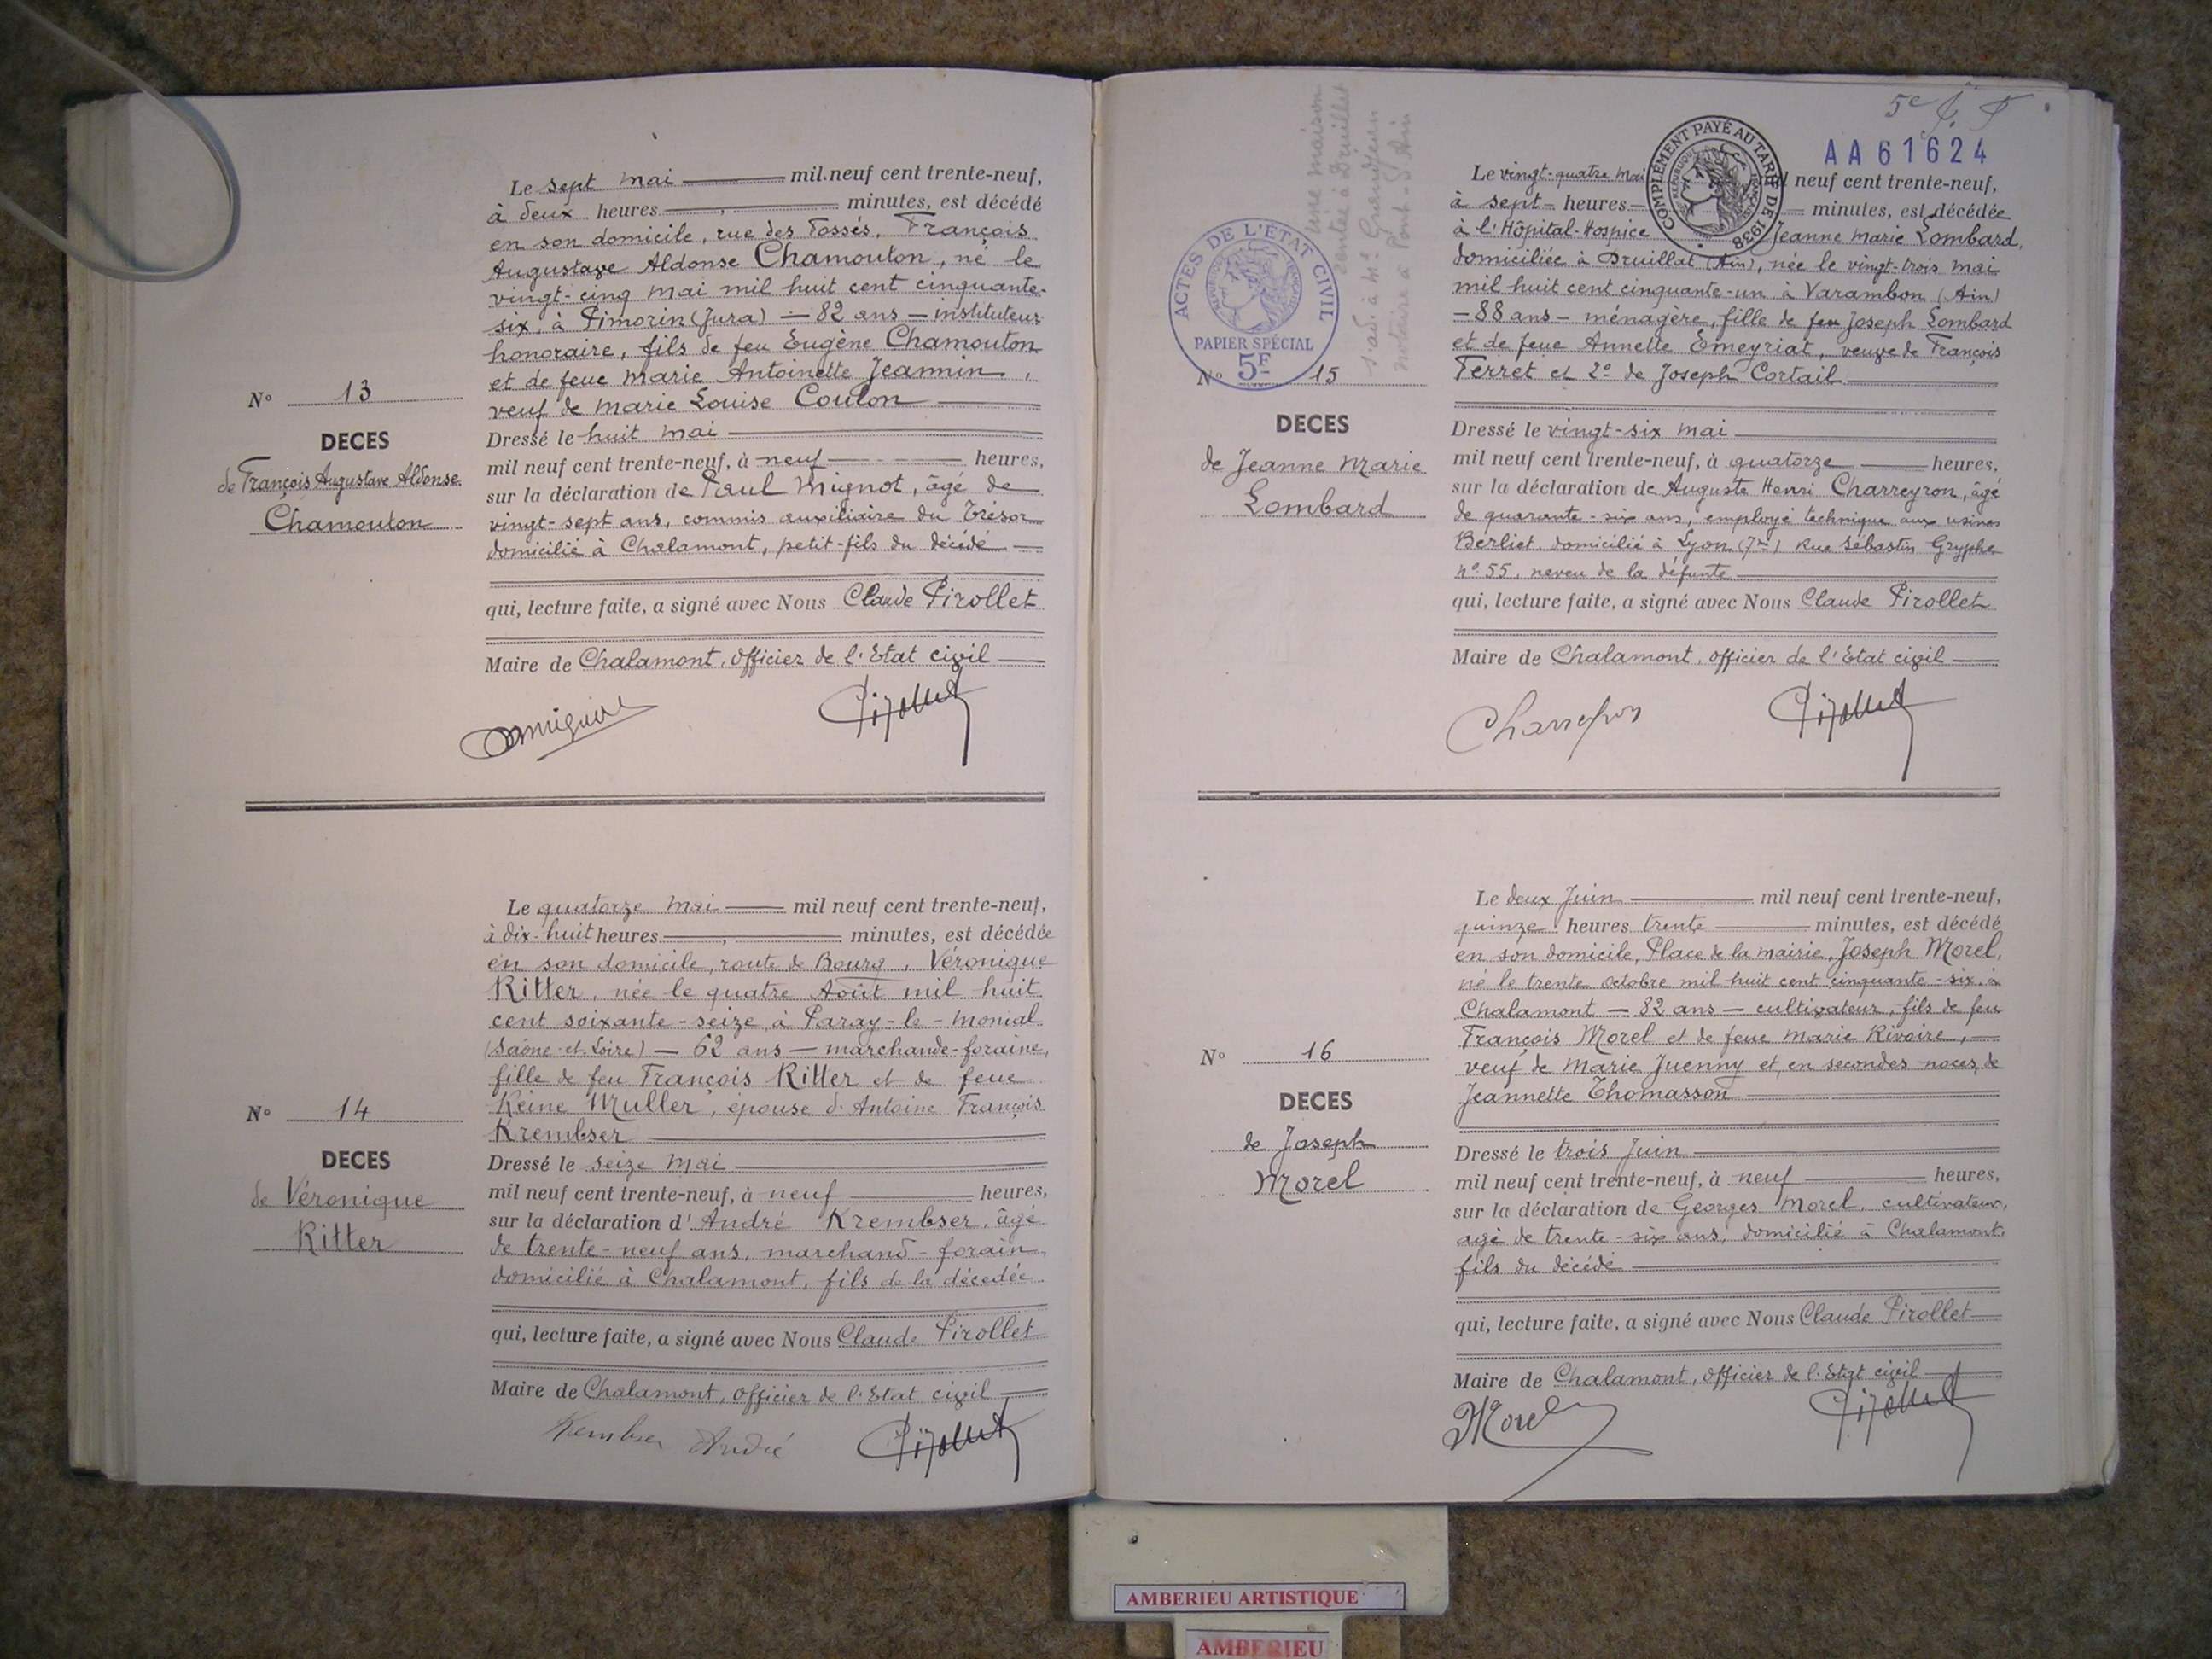 Le sept mai mil neuf cent trente-neuf,
à deux heures minutes, est décédé
en son domicile, rue des Fossés, François
Augustave Aldonse Chamouton, né le
vingt-cinq mai mil huit cent cinquante-
six, à Pimorin (Jura) — 82 ans — instituteur
honoraire, fils de feu Eugène Chamouton
et de feue Marie Antoinette Jeannin,
veuf de Marie Louise Coulon
N° 13
DECES
de François Augustave Aldonse
Chamouton
Dressé le huit mai
mil neuf cent trente-neuf, à neuf heures,
sur la déclaration de Paul Mignot, âgé de
vingt-sept ans, commis auxiliaire du Trésor
domicilié à Chalamont, petit-fils du décédé
qui, lecture faite, a signé avec Nous Claude Pirollet
Maire de Chalamont, officier de l'Etat civil
Pirollet
Le quatorze mai mil neuf cent trente-neuf,
à dix-huit heures minutes, est décédée
en son domicile, route de Bourg, Véronique
Ritter, née le quatre Août mil huit
cent soixante-seize, à Paray-le-Monial
(Saône-et-Loire) — 62 ans — marchande-foraine,
fille de feu François Ritter et de feue
Reine Muller, épouse d'Antoine François
Krembser
N° 14
DECES
de Véronique
Ritter
Dressé le seize mai
mil neuf cent trente-neuf, à neuf heures,
sur la déclaration d'André Krembser, âgé
de trente-neuf ans, marchand-forain
domicilié à Chalamont, fils de la décédée
qui, lecture faite, a signé avec Nous Claude Pirollet
Maire de Chalamont, officier de l'Etat civil
Kembser André Pirollet
AA61624
COMPLÉMENT PAYÉ AU TARIF DE 1938
ACTES DE L'ÉTAT CIVIL
PAPIER SPÉCIAL
5F
une maison
à Druillat
notaire à Pont-d'Ain
Le vingt-quatre mai mil neuf cent trente-neuf,
à sept heures minutes, est décédée
à l'Hôpital-Hospice Jeanne Marie Lombard,
domiciliée à Druillat (Ain), née le vingt-trois mai
mil huit cent cinquante-un à Varambon (Ain)
— 88 ans — ménagère, fille de feu Joseph Lombard
et de feue Annette Emeyriat, veuve de François
Ferret et 2° de Joseph Cortail
N° 15
DECES
de Jeanne Marie
Lombard
Dressé le vingt-six mai
mil neuf cent trente-neuf, à quatorze heures,
sur la déclaration de Auguste Henri Charreyron, âgé
de quarante-six ans, employé technique aux usines
Berliet, domicilié à Lyon (7me) Rue Sébastin Gryphe
n° 55, neveu de la défunte
qui, lecture faite, a signé avec Nous Claude Pirollet
Maire de Chalamont, officier de l'Etat civil
Charreyron Pirollet
Le deux Juin mil neuf cent trente-neuf,
quinze heures trente minutes, est décédé
en son domicile, Place de la mairie, Joseph Morel,
né le trente octobre mil huit cent cinquante-six, à
Chalamont — 82 ans — cultivateur, fils de feu
François Morel et de feue Marie Rivoire,
veuf de Marie Juenny et, en secondes noces, de
Jeannette Thomasson
N° 16
DECES
de Joseph
Morel
Dressé le trois Juin
mil neuf cent trente-neuf, à neuf heures,
sur la déclaration de Georges Morel, cultivateur,
âgé de trente-six ans, domicilié à Chalamont,
fils du décédé
qui, lecture faite, a signé avec Nous Claude Pirollet
Maire de Chalamont, officier de l'Etat civil
Morel Pirollet
AMBERIEU ARTISTIQUE
AMBERIEU